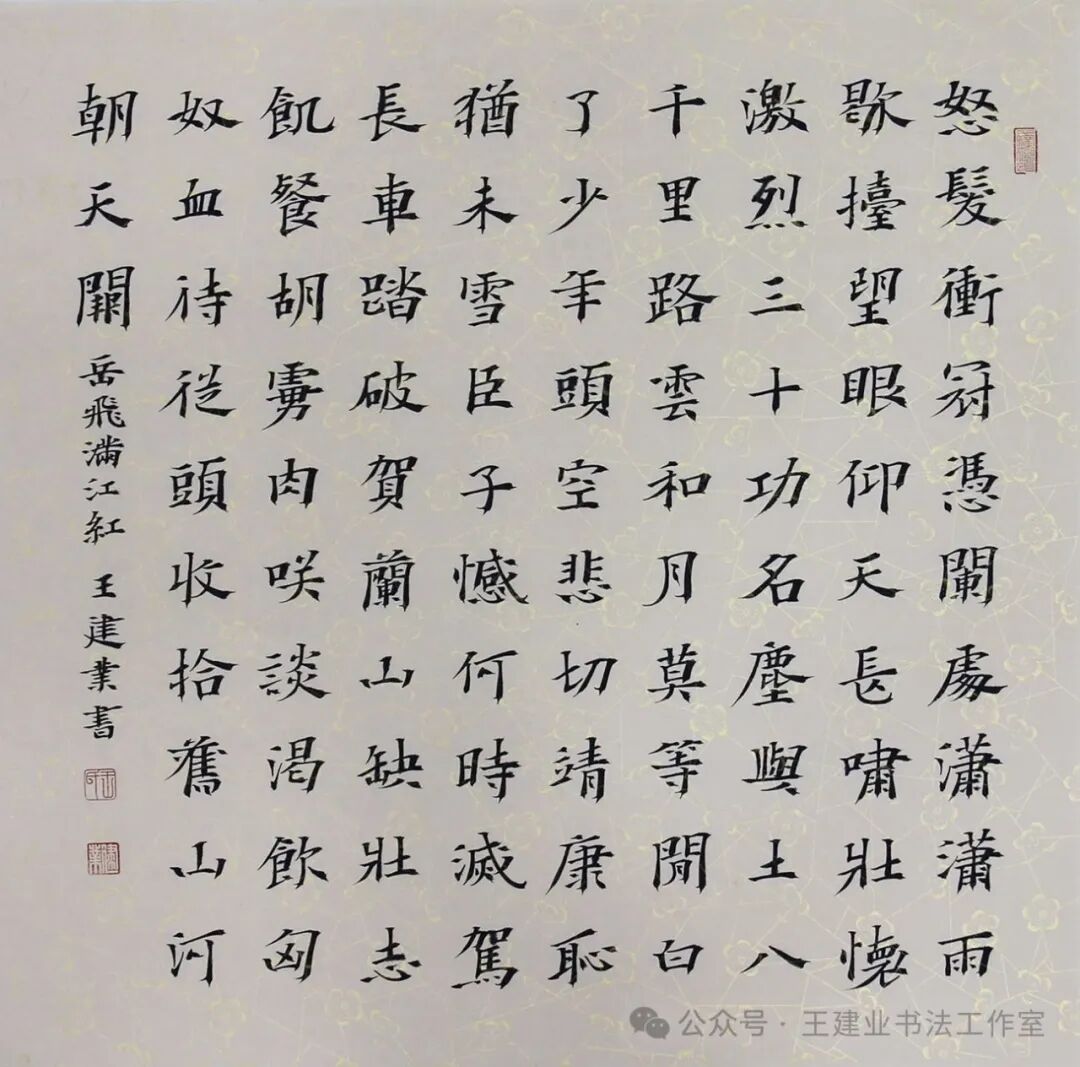 怒髮衝冠憑闌處瀟瀟雨
歇擡望眼仰天長嘯壯懷
激烈三十功名塵與土八
千里路雲和月莫等閒白
了少年頭空悲切靖康恥
猶未雪臣子憾何時滅駕
長車踏破賀蘭山缺壯志
飢餐胡虜肉咲談渴飲匈
奴血待從頭收拾舊山河
朝天闕
岳飛滿江紅 王建業書
公众号·王建业书法工作室